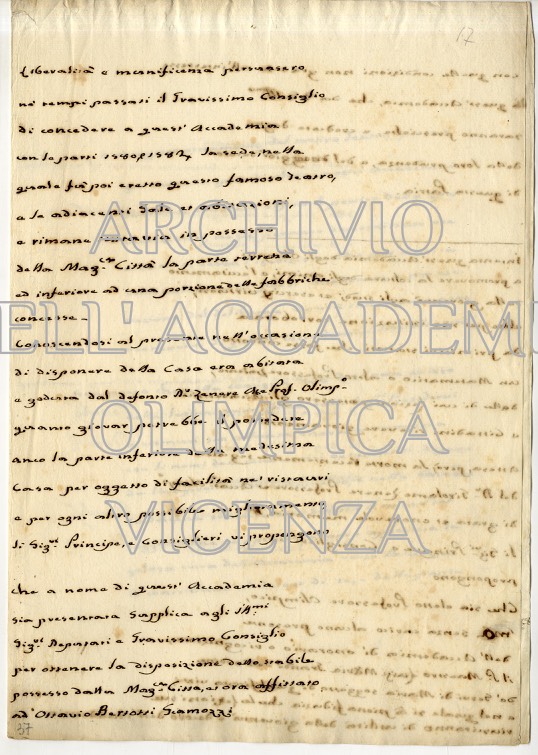 17
Liberalità e munificenza persuasero
ne' tempi passati il Gravissimo Consiglio
di concedere a quest' Accademia
con le parti 1580, e 1582 la sede, nella
quale fù poi eretto questo famoso Teatro,
e le adiacenti Sale et abitazioni,
e rimane tuttavia in possesso
della Mag.ca Città la parte terrena
ed inferiore ad una porzione delle fabbriche
concesse.
Conoscendosi al presente nell'occasione
di disponere della Casa era abitata
e goduta dal defonto D.r Zenere Prof. Olimp.o
quanto giovar potrebbe il possedere
anco la parte inferiore della medesima
Casa per oggetto di facilità ne' ristauri
e per ogni altro possibile miglioramento
li Sig.ri Principe, e Consiglieri vi propongono
Che a nome di quest' Accademia
sia presentata Supplica agli Ill.mi
Sig.ri Deputati e Gravissimo Consiglio
per ottenere la disposizione dello stabile
possesso dalla Mag.ca Città, et ora affittato
ad' Ottavio Bertotti Scamozzi
37
ARCHIVIO
DELL' ACCADEM
OLIMPICA
VICENZA